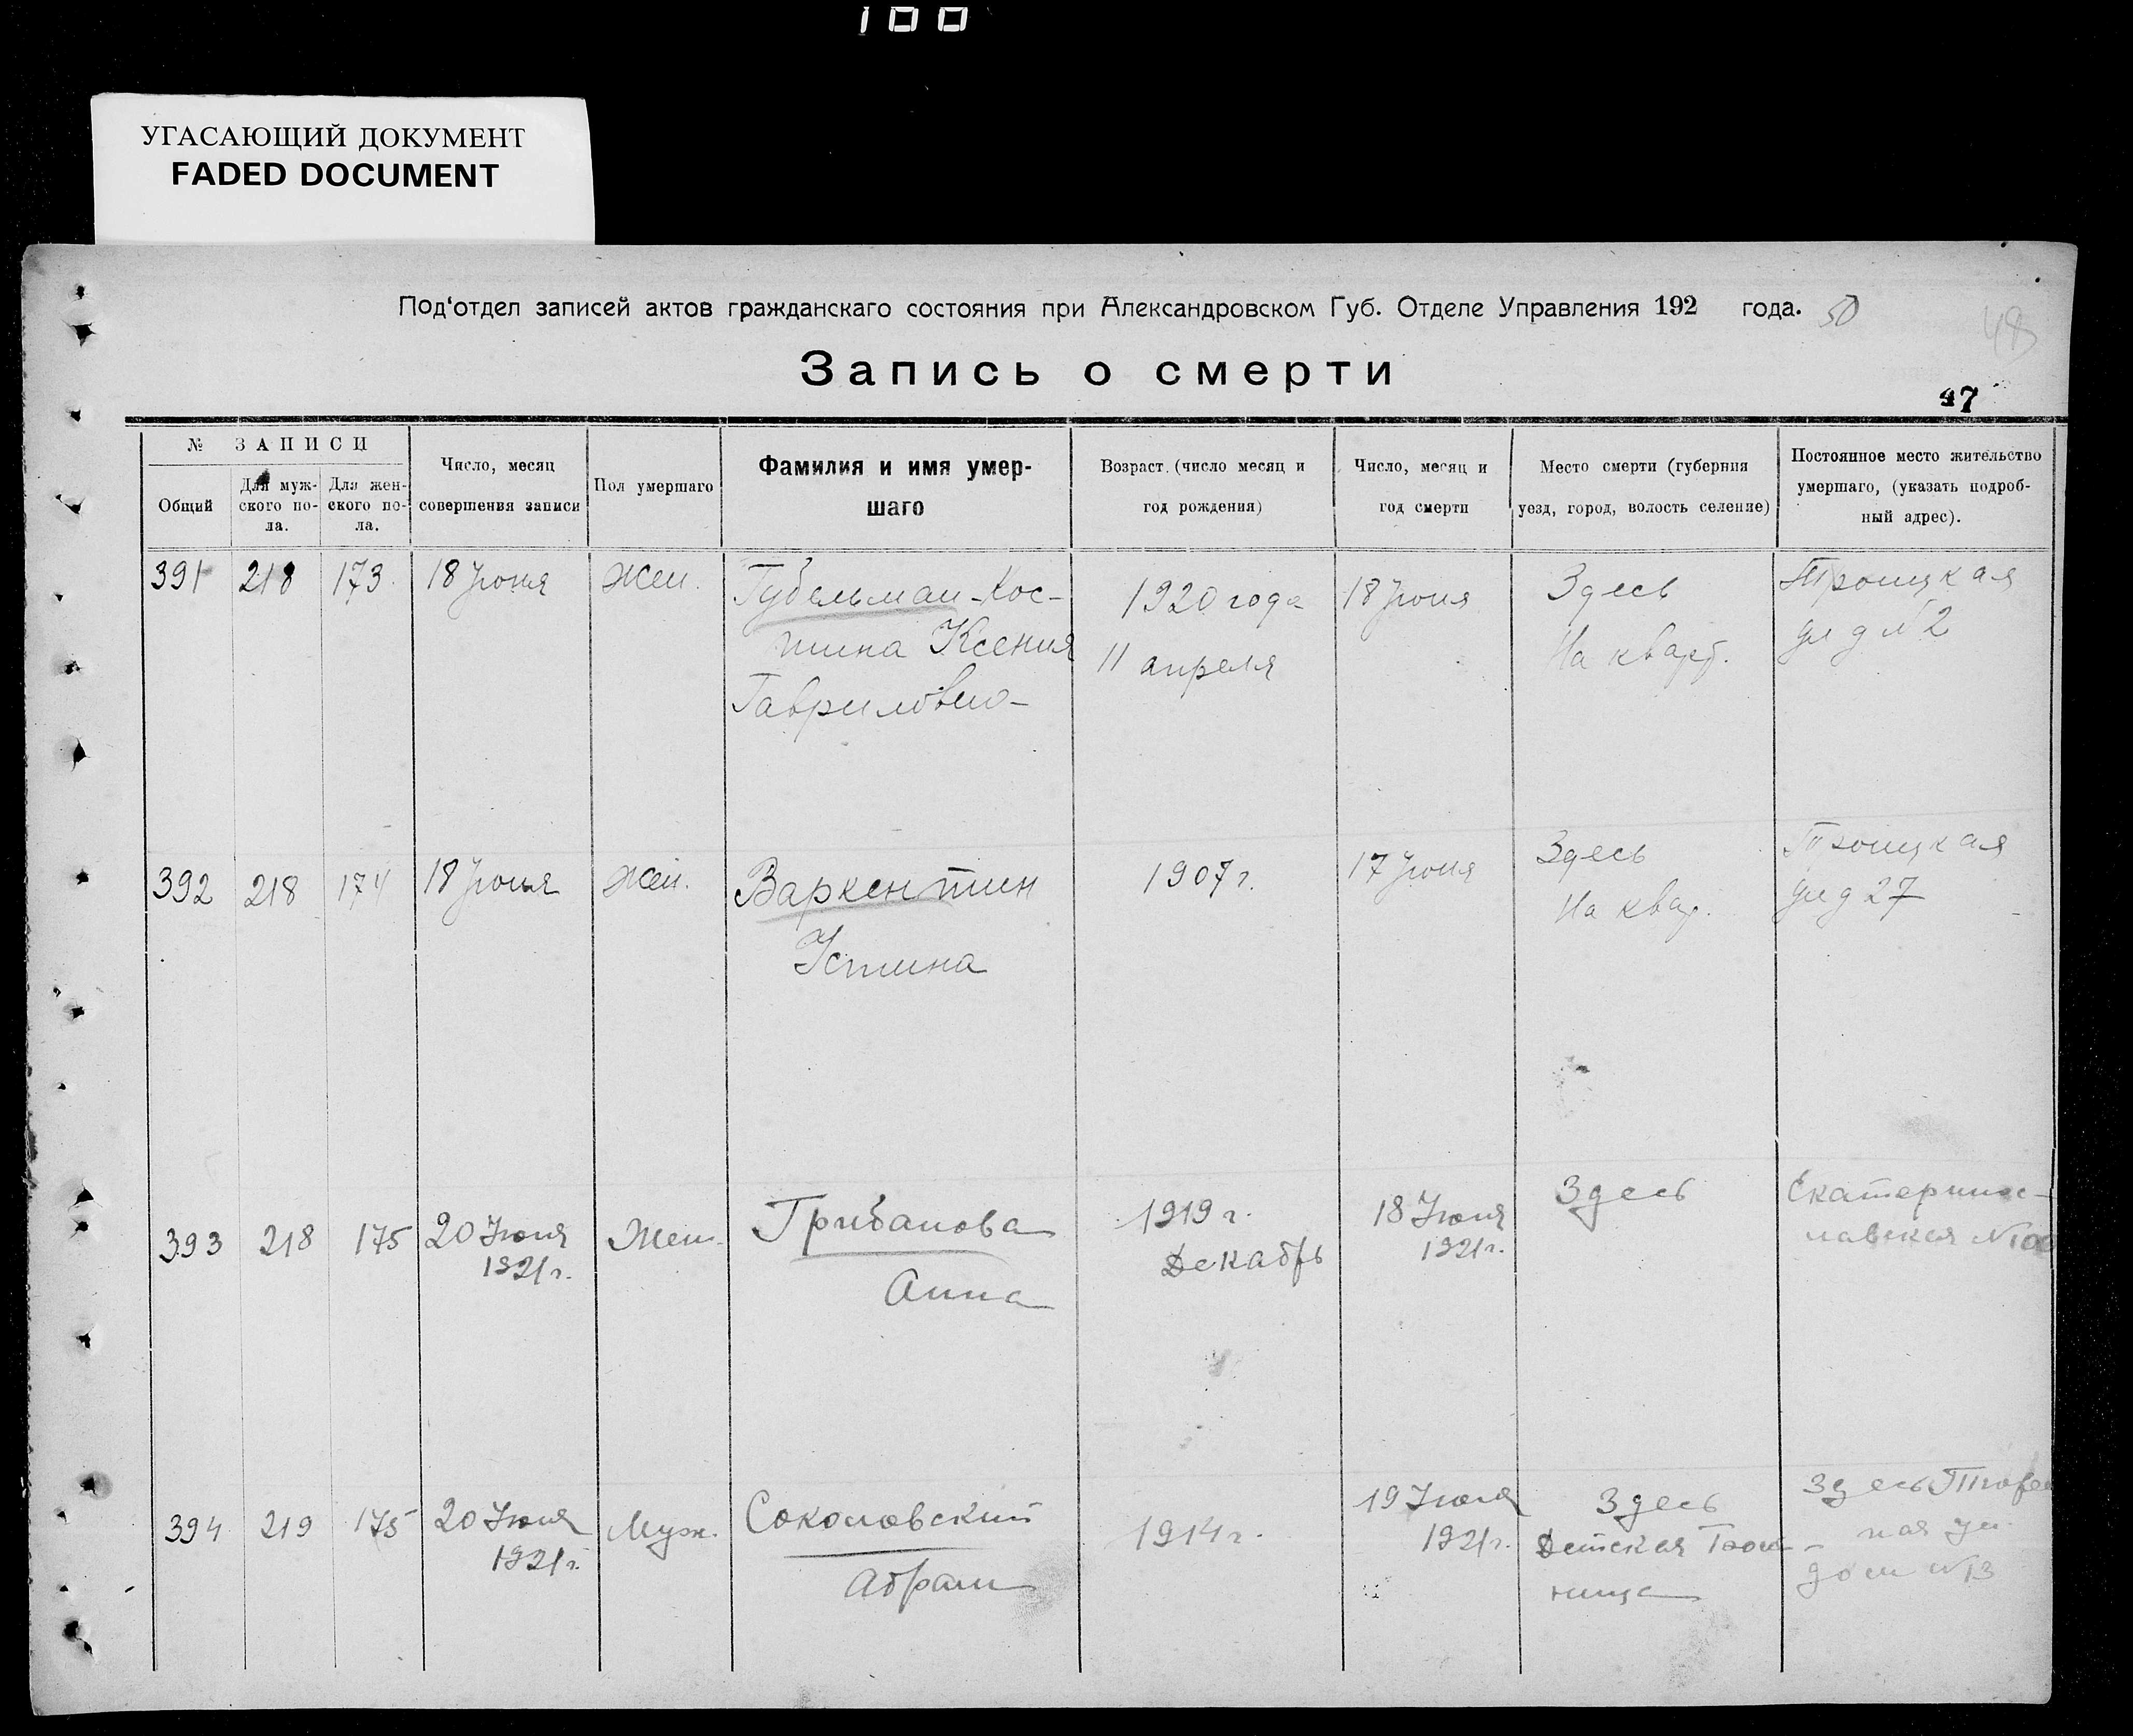 100
УГАСАЮЩИЙ ДОКУМЕНТ
FADED DOCUMENT
Под‘отдел записей актов гражданскаго состояния при Александровском Губ. Отделе Управления 192 года. 50
48
Запись о смерти
47
№ ЗАПИСИ
Общий
Для муж-
ского по-
ла.
Для жен-
ского по-
ла.
Число, месяц
совершения записи
Пол умершаго
Фамилия и имя умер-
шаго
Возраст. (число месяц и
год рождения)
Число, месяц и
год смерти
Место смерти (губерния
уезд, город, волость селение)
Постоянное место жительство
умершаго, (указать подроб-
ный адрес).
391 218 173. 18 Июня Жен.
Губельман-Кос-
тина Ксения
Гавриловно-
1920 года
11 апреля
18 Июня
Здесь
На кварт.
Троицкая
ул д № 2
392 218 174 18 Июня Жен.
Варкентин
Устина
1907 г.
17 Июня
Здесь
На квар.
Троицкая
ул д 27
393 218 175 20 Июня
1921 г.
Жен.
Грибанова
Анна
1919 г.
Декабрь
18 Июня
1921 г.
Здесь
Екатеринос-
лавская №100
394 219 175 20 Июня
1921 г.
Муж.
Соколовский
Абрам
1914 г.
19 Июня
1921 г.
Здесь
Детская Боль-
ница
Здесь
ная ул.
дом №13